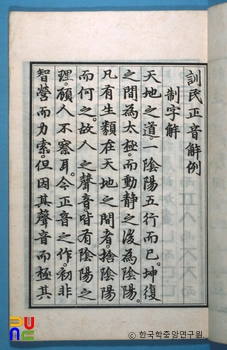 訓民正音解例
制字解
天地之道。一陰陽五行而已。坤復
之間為太極。而動靜之後為陰陽。
凡有生類在天地之間者。捨陰陽
而何之。故人之聲音。皆有陰陽之
理。顧人不察耳。今正音之作。初非
智營而力索。但因其聲音而極其
ⓒ 한국학중앙연구원